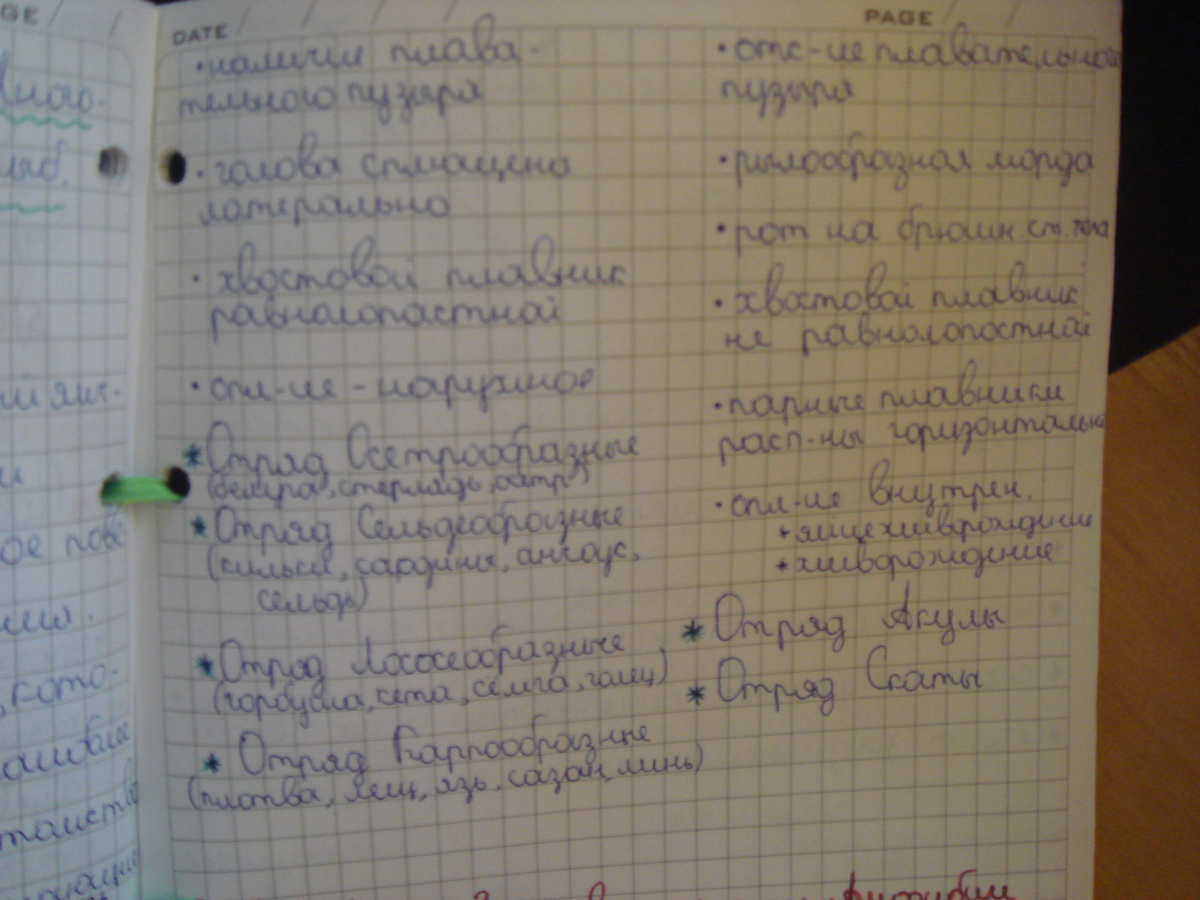 DATE
PAGE
•наличие плава-
тельного пузыря
•голова сплащена
латерально
•хвостовой плавник
равнолопастной
•опл-ие-наружное
*Отряд Осетрообразные
(белуга, стерлядь, осётр)
*Отряд Сельдеобразные
(килька, сардина, анчоус,
сельдь)
*Отряд Лососеобразные
(горбуша, кета, сёмга, голец)
*Отряд Карпообразные
(плотва, лещ, язь, сазан, линь)
•отс-ие плавательного
пузыря
•рылообразная морда
•рот на брюшн ст. тела
•хвостовой плавник
не равнолопостной
•парные плавники
расп-ны горизонтально
•опл-ие внутрен.
*яйцеживорождение
*живорождение
*Отряд Акулы
*Отряд Скаты